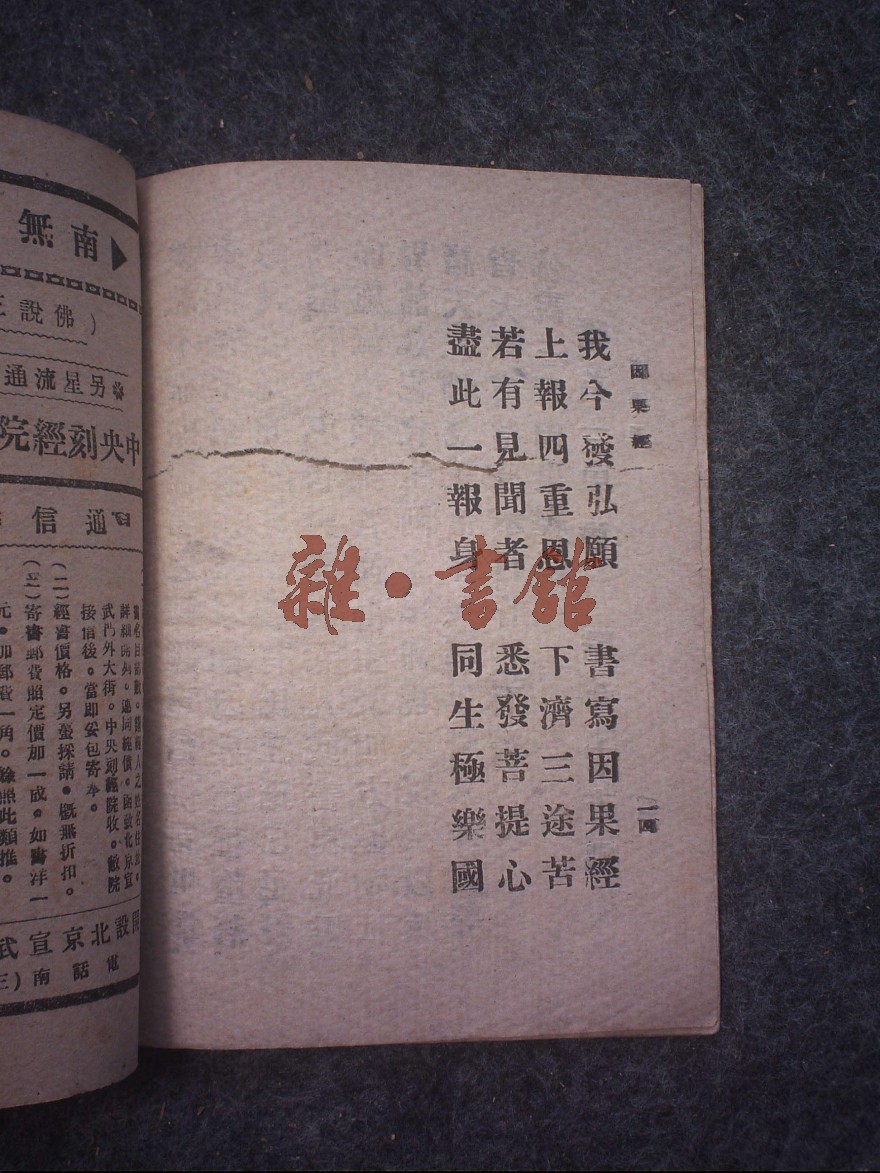 因果經
我今發弘願 書寫因果經
上報四重恩 下濟三途苦
若有見聞者 悉發菩提心
盡此一報身 同生極樂國
一四
雜·書館
南無
(佛說三
另星流通
中央刻經院
通信
武門外大街。中央刻經院收。敝院
接信後。當即妥包寄奉。
(二)經書價格。另蠆採請。概無折扣。
(三)寄書郵費照定價加一成。如購洋一
元。加郵費一角。餘照此類推。
開設北京宣武
電話南(三